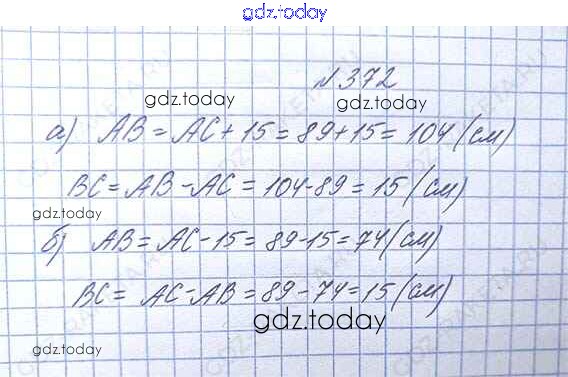 gdz.today
№ 372
gdz.today gdz.today
а) AB = AC + 15 = 89 + 15 = 104 (см)
BC = AB - AC = 104 - 89 = 15 (см)
gdz.today
б) AB = AC - 15 = 89 - 15 = 74 (см)
BC = AC - AB = 89 - 74 = 15 (см)
gdz.today
gdz.today